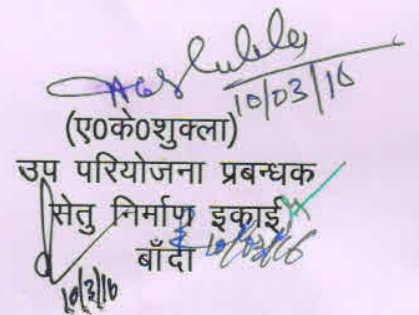 10/03/16
(ए0के0शुक्ला)
उप परियोजना प्रबन्धक
सेतु निर्माण इकाई
बाँदा 10/03/16
10/3/16